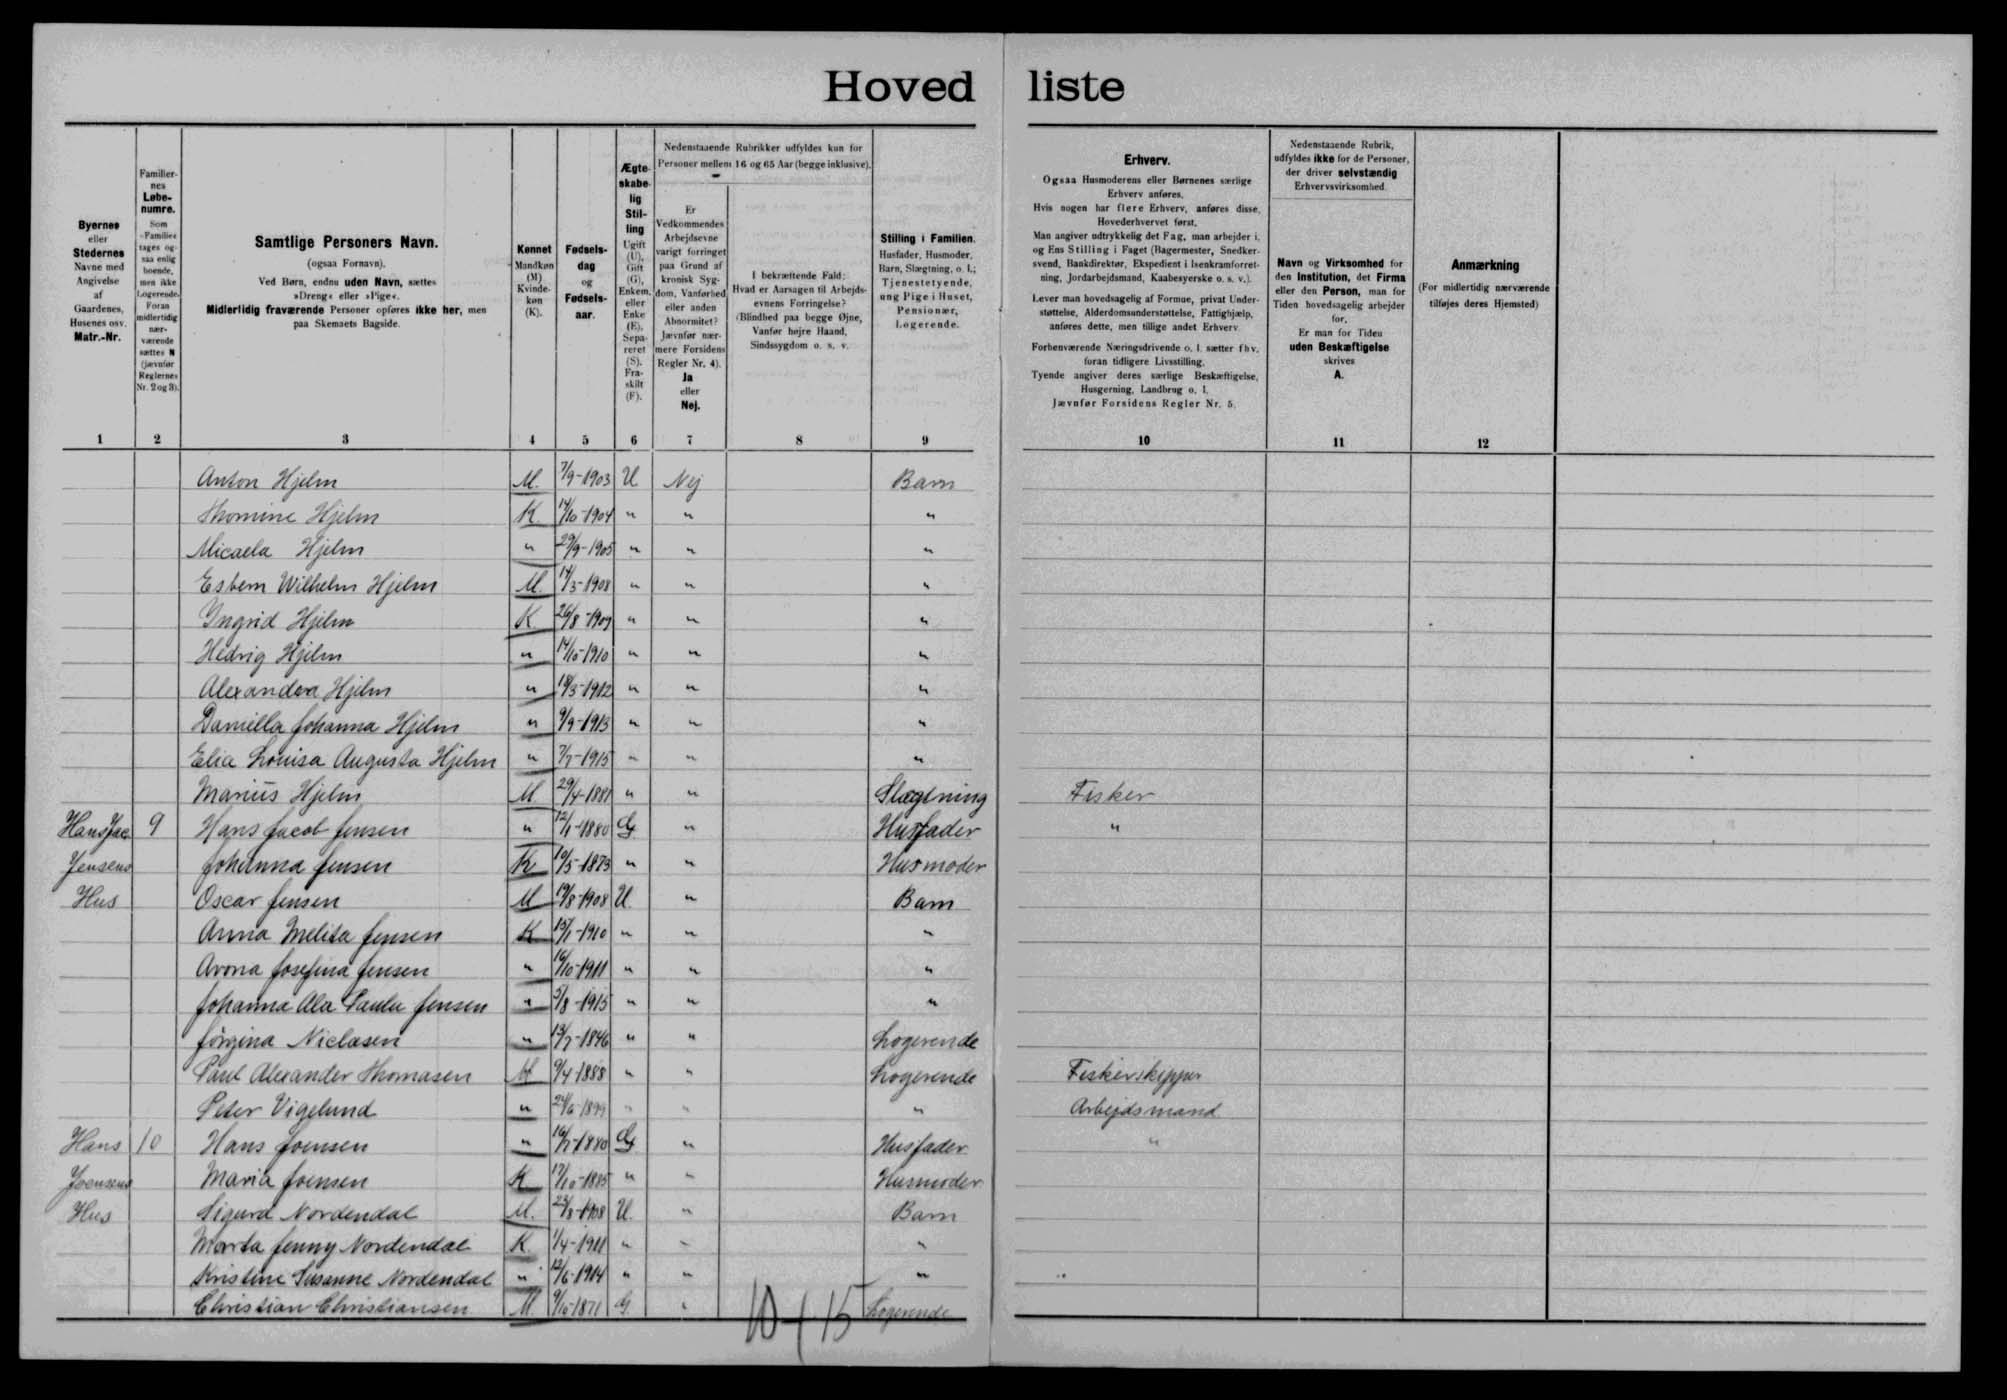 Hoved liste
Byernes
eller
Stedernes
Navne med
Angivelse
af
Gaardenes,
Husenes osv.
Matr.-Nr.
Familier-
nes
Løbe-
numre.
Som
»Familie«
tages og-
saa enlig
boende,
men ikke
Logerende.
Foran
midlertidig
nær-
værende
sættes N
(jævnfør
Reglernes
Nr. 2 og 3).
Samtlige Personers Navn.
(ogsaa Fornavn).
Ved Børn, endnu uden Navn, sættes
»Dreng« eller »Pige«.
Midlertidig fraværende Personer opføres ikke her, men
paa Skemaets Bagside.
Kønnet
Mandkøn
(M)
Kvinde-
køn
(K).
Fødsels-
dag
og
Fødsels-
aar.
Ægte-
skabe-
lig
Stil-
ling
Ugift
(U),
Gift
(G),
Enkem.
eller
Enke
(E),
Sepa-
reret
(S),
Fra-
skilt
(F).
Nedenstaaende Rubrikker udfyldes kun for
Personer mellem 16 og 65 Aar (begge inklusive).
Er
Vedkommendes
Arbejdsevne
varigt forringet
paa Grund af
kronisk Syg-
dom, Vanførhed
eller anden
Abnormitet?
Jævnfør nær-
mere Forsidens
Regler Nr. 4).
Ja
eller
Nej.
I bekræftende Fald:
Hvad er Aarsagen til Arbejds-
evnens Forringelse?
(Blindhed paa begge Øjne,
Vanfør højre Haand,
Sindssygdom o. s. v.
Stilling i Familien.
Husfader, Husmoder,
Barn, Slægtning, o. l.;
Tjenestetyende,
ung Pige i Huset,
Pensionær,
Logerende.
Erhverv.
Ogsaa Husmoderens eller Børnenes særlige
Erhverv anføres.
Hvis nogen har flere Erhverv, anføres disse,
Hovederhvervet først.
Man angiver udtrykkelig det Fag, man arbejder i,
og Ens Stilling i Faget (Bagermester, Snedker-
svend, Bankdirektør, Ekspedient i Isenkramforret-
ning, Jordarbejdsmand, Kaabesyerske o. s. v.).
Lever man hovedsagelig af Formue, privat Under-
støttelse, Alderdomsunderstøttelse, Fattighjælp,
anføres dette, men tillige andet Erhverv.
Forhenværende Næringsdrivende o. l. sætter fhv.
foran tidligere Livsstilling.
Tyende angiver deres særlige Beskæftigelse,
Husgerning, Landbrug o. l.
Jævnfør Forsidens Regler Nr. 5.
Nedenstaaende Rubrik,
udfyldes ikke for de Personer,
der driver selvstændig
Erhvervsvirksomhed.
Navn og Virksomhed for
den Institution, det Firma
eller den Person, man for
Tiden hovedsagelig arbejder
for.
Er man for Tiden
uden Beskæftigelse
skrives
A.
Anmærkning
(For midlertidig nærværende
tilføjes deres Hjemsted)
1 2 3 4 5 6 7 8 9 10 11 12
Anton Hjelm M. 7/9-1903 U Nej Barn
Thomine Hjelm K. 14/10-1904 " " "
Micaela Hjelm " 29/9-1905 " " "
Esbern Wilhelm Hjelm M. 14/3-1908 " " "
Yngrid Hjelm K. 26/8-1909 " " "
Hedvig Hjelm " 14/10-1910 " " "
Alexandra Hjelm " 18/3-1912 " " "
Daniella Johanna Hjelm " 9/9-1913 " " "
Elia Louisa Augusta Hjelm " 7/7-1915 " " "
Marius Hjelm M. 29/4-1881 " " Slægtning Fisker
Hans Jac. 9 Hans Jacob Jensen " 12/1-1880 G " Husfader "
Jensens Johanna Jensen K 10/5-1873 " " Husmoder
Hus Oscar Jensen M 19/8-1908 U. " Barn
Anna Melita Jensen K 15/1-1910 " " "
Avona Josefina Jensen " 16/10-1911 " " "
Johanna Ala Paula Jensen " 5/8-1915 " " "
Jørgina Niclasen " 13/7-1846 " " Logerende
Paul Alexander Thomasen M 9/4-1888 " " Logerende Fiskerskipper
Peter Vigelund " 24/6-1899 " " " Arbejdsmand
Hans 10 Hans Joensen " 16/7-1880 G " Husfader "
Joensens Maria Joensen K 17/10-1885 " " Husmoder
Hus Sigurd Nordendal M. 23/8-1908 U. " Barn
Marta Jenny Nordendal K. 1/4-1911 " " "
Kristine Susanne Nordendal " 12/6-1914 " " "
Christian Christiansen M. 9/10-1871 G. " Logerende
10 + 15